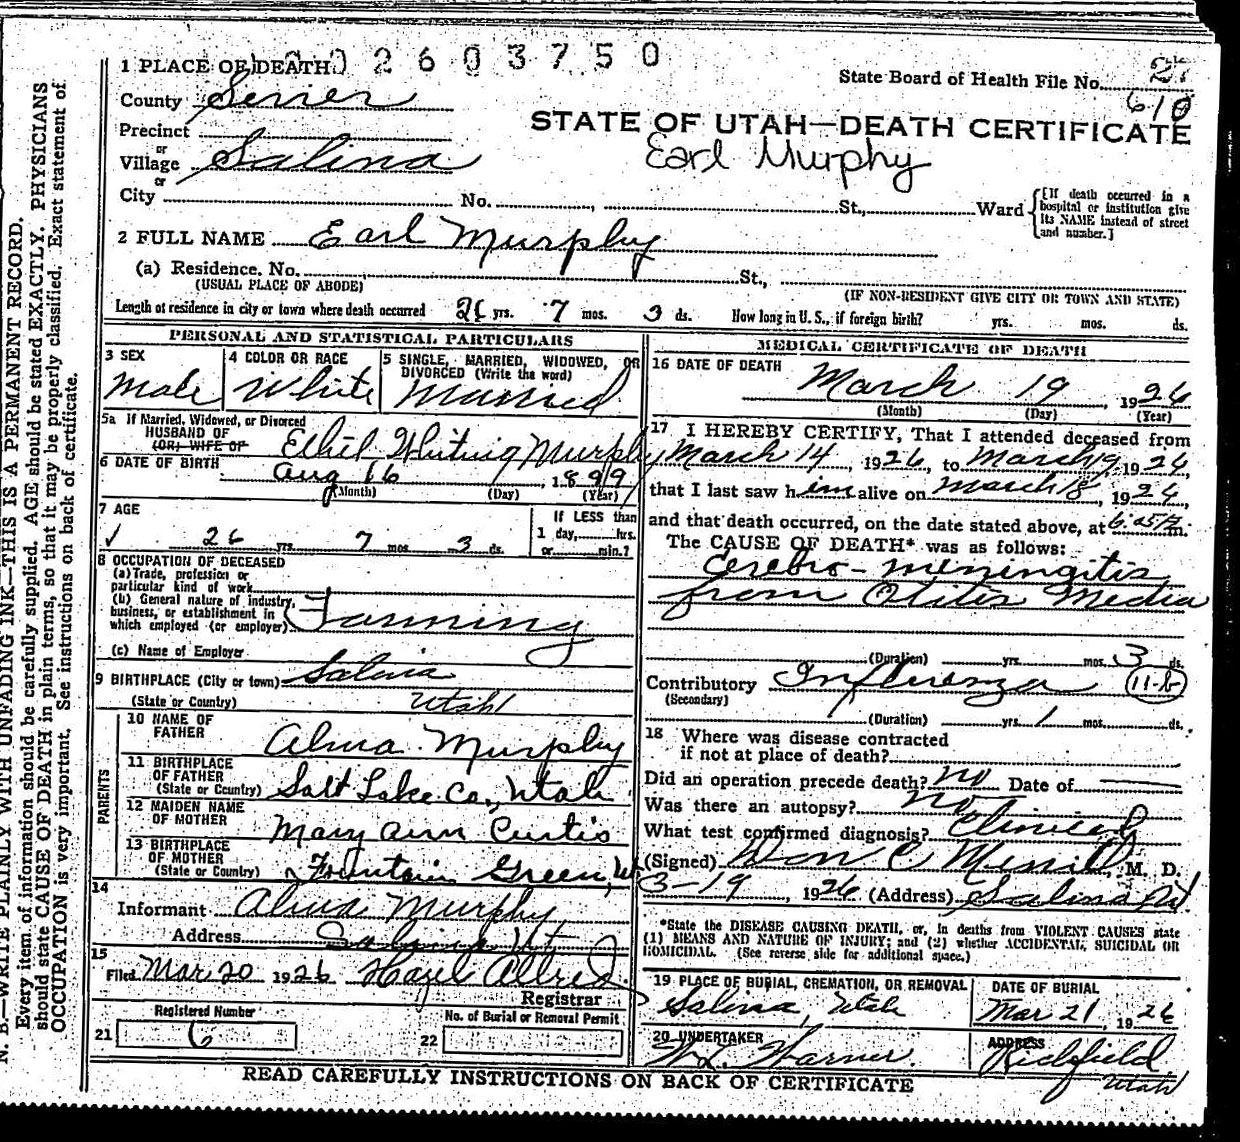 2603750
1 PLACE OF DEATH
State Board of Health File No. 2
610
County Sevier
STATE OF UTAH—DEATH CERTIFICATE
Earl Murphy
Precinct
or
Village Salina
or
City No. , St., Ward
[If death occurred in a hospital or institution give its NAME instead of street and number.]
2 FULL NAME Earl Murphy
(a) Residence. No. St.,
(USUAL PLACE OF ABODE)
(IF NON-RESIDENT GIVE CITY OR TOWN AND STATE)
Length of residence in city or town where death occurred 26 yrs. 7 mos. 3 ds. How long in U. S., if foreign birth? yrs. mos. ds.
PERSONAL AND STATISTICAL PARTICULARS
3 SEX
Male
4 COLOR OR RACE
White
5 SINGLE, MARRIED, WIDOWED, OR DIVORCED (Write the word)
Married
5a If Married, Widowed, or Divorced
HUSBAND OF
(OR) WIFE OF
Ethel Whiting Murphy
6 DATE OF BIRTH Aug 16, 1899
(Month) (Day) (Year)
7 AGE
26 yrs. 7 mos. 3 ds.
If LESS than
1 day, hrs.
or min.?
8 OCCUPATION OF DECEASED
(a) Trade, profession or
particular kind of work
(b) General nature of industry,
business, or establishment in
which employed (or employer) Farming
(c) Name of Employer
9 BIRTHPLACE (City or town) Salina
(State or Country) Utah
PARENTS
10 NAME OF FATHER Alma Murphy
11 BIRTHPLACE OF FATHER
(State or Country) Salt Lake Co., Utah
12 MAIDEN NAME OF MOTHER Mary Ann Curtis
13 BIRTHPLACE OF MOTHER
(State or Country) Fountain Green, Ut
14
Informant Alma Murphy
Address Salina Ut.
15
Filed Mar 20 1926 Hazel Allred
Registrar
Registered Number
21 6
No. of Burial or Removal Permit
22
MEDICAL CERTIFICATE OF DEATH
16 DATE OF DEATH
March 19, 1926
(Month) (Day) (Year)
17 I HEREBY CERTIFY, That I attended deceased from
March 14, 1926, to March 19 1926,
that I last saw him alive on March 18, 1926,
and that death occurred, on the date stated above, at m.
The CAUSE OF DEATH* was as follows:
Cerebro-meningitis
from Otitis Media
(Duration) yrs. mos. 3 ds.
Contributory Influenza 11-b
(Secondary)
(Duration) yrs. 1 mos. ds.
18 Where was disease contracted
if not at place of death?
Did an operation precede death? no Date of
Was there an autopsy? no
What test confirmed diagnosis? Clinical
(Signed) Don C Merrill, M. D.
3-19, 1926 (Address) Salina Ut.
*State the DISEASE CAUSING DEATH, or, in deaths from VIOLENT CAUSES state
(1) MEANS AND NATURE OF INJURY; and (2) whether ACCIDENTAL, SUICIDAL OR
HOMICIDAL. (See reverse side for additional space.)
19 PLACE OF BURIAL, CREMATION, OR REMOVAL
Salina, Utah
DATE OF BURIAL
Mar 21, 1926
20 UNDERTAKER
Warner
ADDRESS
Richfield
Utah
READ CAREFULLY INSTRUCTIONS ON BACK OF CERTIFICATE
N. B.—WRITE PLAINLY WITH UNFADING INK—THIS IS A PERMANENT RECORD.
Every item of information should be carefully supplied. AGE should be stated EXACTLY. PHYSICIANS
should state CAUSE OF DEATH in plain terms, so that it may be properly classified. Exact statement of
OCCUPATION is very important. See instructions on back of certificate.